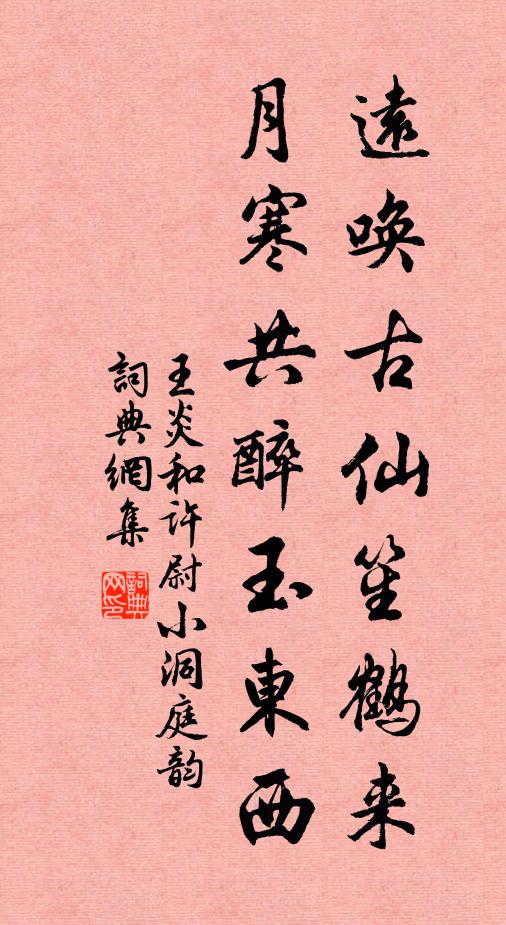 遠唤古仙笙鶴来
月寒共醉玉東西
王炎和许尉小洞庭韵
詞典網集
詞典网印